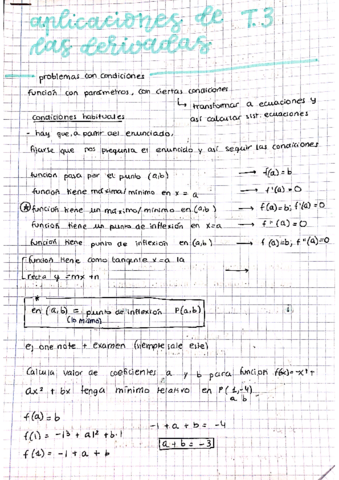 aplicaciones de T.3
las derivadas
problemas con condiciones
función con parámetros, con ciertas condiciones
↳ transformar a ecuaciones y
así calcular sist. ecuaciones
condiciones habituales
- hay que, a partir del enunciado,
fijarse que nos pregunta el enunciado y así seguir las condiciones
función pasa por el punto (a,b) → f(a) = b
función tiene máximo/mínimo en x = a → f'(a) = 0
función tiene un máximo/mínimo en (a,b) → f(a)=b; f'(a)=0
función tiene un punto de inflexión en x=a → f''(a) = 0
función tiene punto de inflexión en (a,b) → f(a)=b; f''(a)=0
función tiene como tangente x=a la →
recta y = mx + n
en (a,b) = punto de inflexión P(a,b)
(lo mismo)
ej one note + examen (siempre sale este)
Calcula valor de coeficientes a y b para función f(x)= x³ +
ax² + bx tenga mínimo relativo en P(1,-4)
a b
f(a) = b
f(1) = -1³ + a1² + b·1
f(1) = -1 + a + b
-1 + a + b = -4
a + b = -3